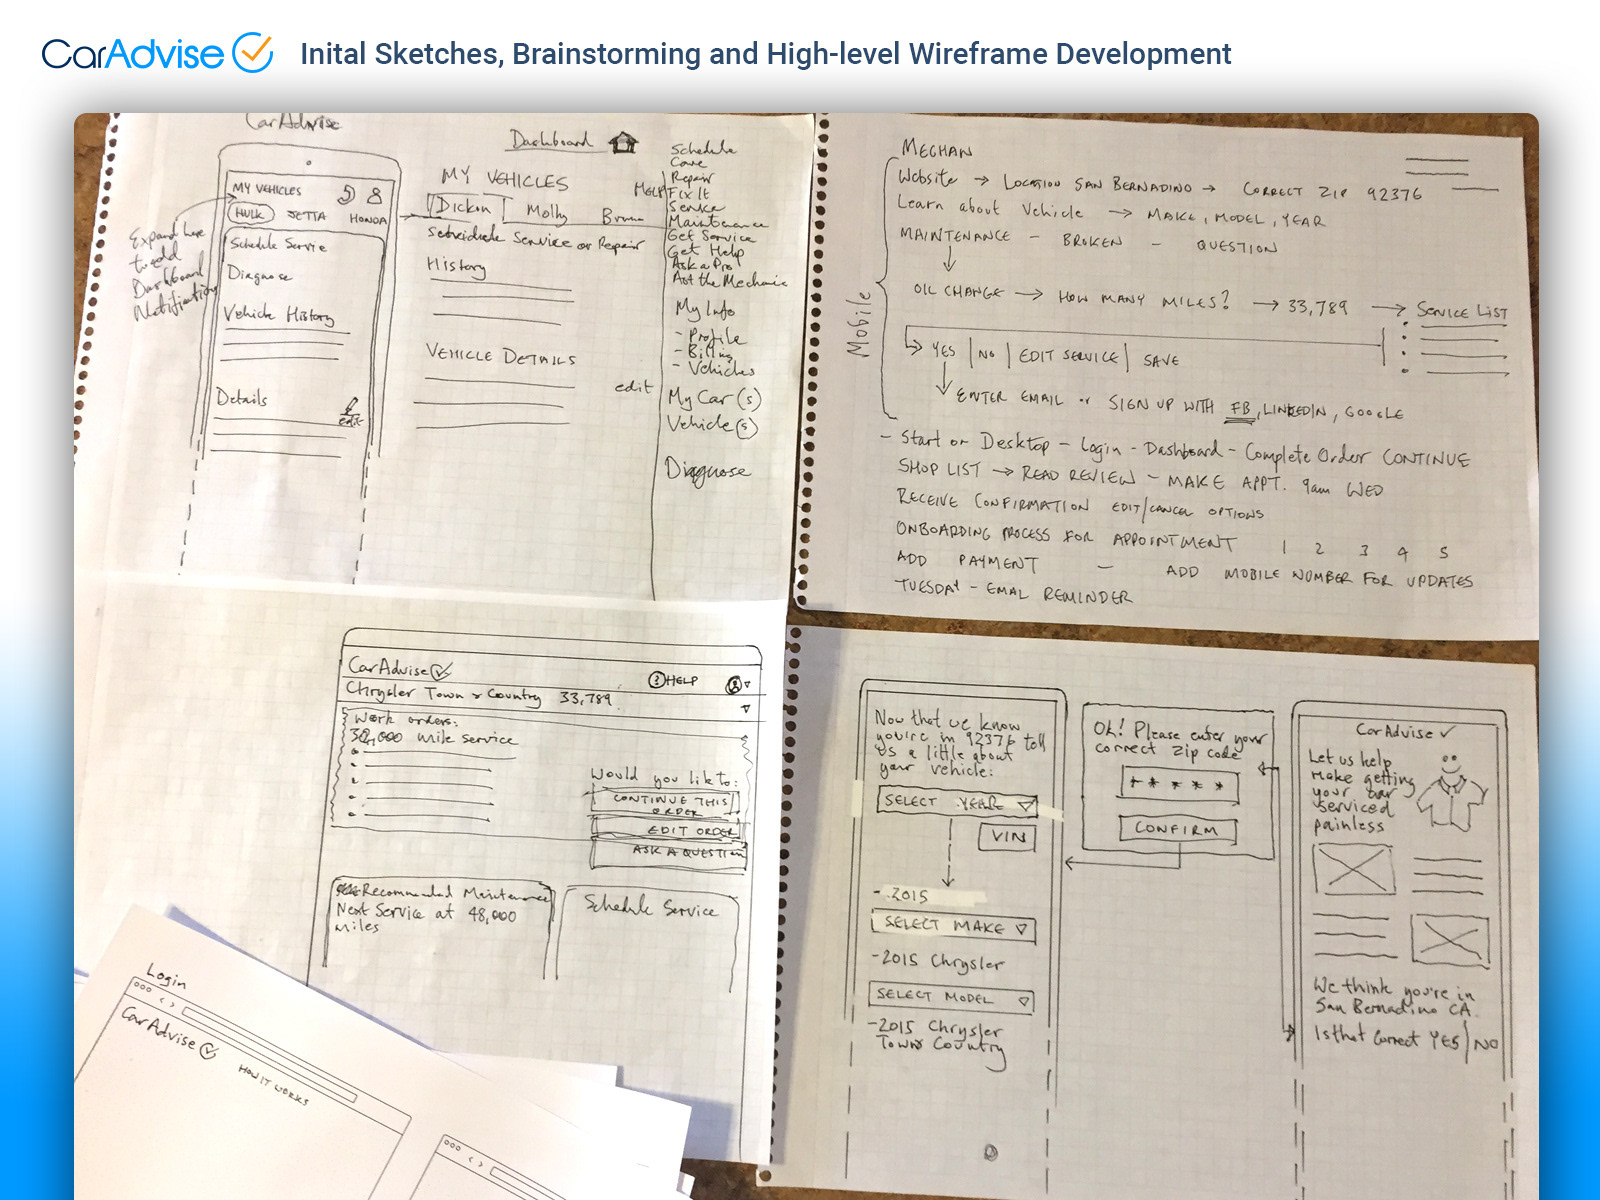 CarAdvise Inital Sketches, Brainstorming and High-level Wireframe Development
CarAdvise
MY VEHICLES
HULK JETTA HONDA
Schedule Service
Diagnose
Vehicle History
Details
edit
Expand here
to add
Dashboard
Notification
Dashboard
MY VEHICLES
Dickon Molly
Schedule Service or Repair
History
VEHICLE DETAILS
edit
HELP
Schedule
Care
Repair
Fix It
Service
Maintenance
Get Service
Get Help
Ask a Pro
Ask the Mechanic
My Info
- Profile
- Billing
- Vehicles
My Car(s)
Vehicle(s)
Diagnose
MEGHAN
Mobile
Website → LOCATION SAN BERNADINO → CORRECT ZIP 92376
Learn about Vehicle → MAKE, MODEL, YEAR
MAINTENANCE - BROKEN - QUESTION
OIL CHANGE → HOW MANY MILES? → 33,789 → SERVICE LIST
YES | NO | EDIT SERVICE | SAVE
ENTER EMAIL or SIGN UP WITH FB, LINKEDIN, GOOGLE
- Start on Desktop - Login - Dashboard - Complete Order CONTINUE
SHOP LIST → READ REVIEW - MAKE APPT. 9am WED
RECEIVE CONFIRMATION EDIT/CANCEL OPTIONS
ONBOARDING PROCESS FOR APPOINTMENT 1 2 3 4 5
ADD PAYMENT - ADD MOBILE NUMBER FOR UPDATES
TUESDAY - EMAL REMINDER
CarAdvise
? HELP
Chrysler Town & Country 33,789
Work orders:
30,000 mile service
Would you like to:
CONTINUE THIS
ORDER
EDIT ORDER
ASK A QUESTION
Recommended Maintenance
Next Service at 48,000
miles
Schedule Service
Login
CarAdvise
HOW IT WORKS
Now that we know
you're in 92376 tell
us a little about
your vehicle:
SELECT YEAR
VIN
- 2015
SELECT MAKE
- 2015 Chrysler
SELECT MODEL
- 2015 Chrysler
Town Country
Oh! Please enter your
correct zip code
* * * * *
CONFIRM
CarAdvise
Let us help
make getting
your car
serviced
painless
We think you're in
San Bernadino CA.
Is that correct YES | NO